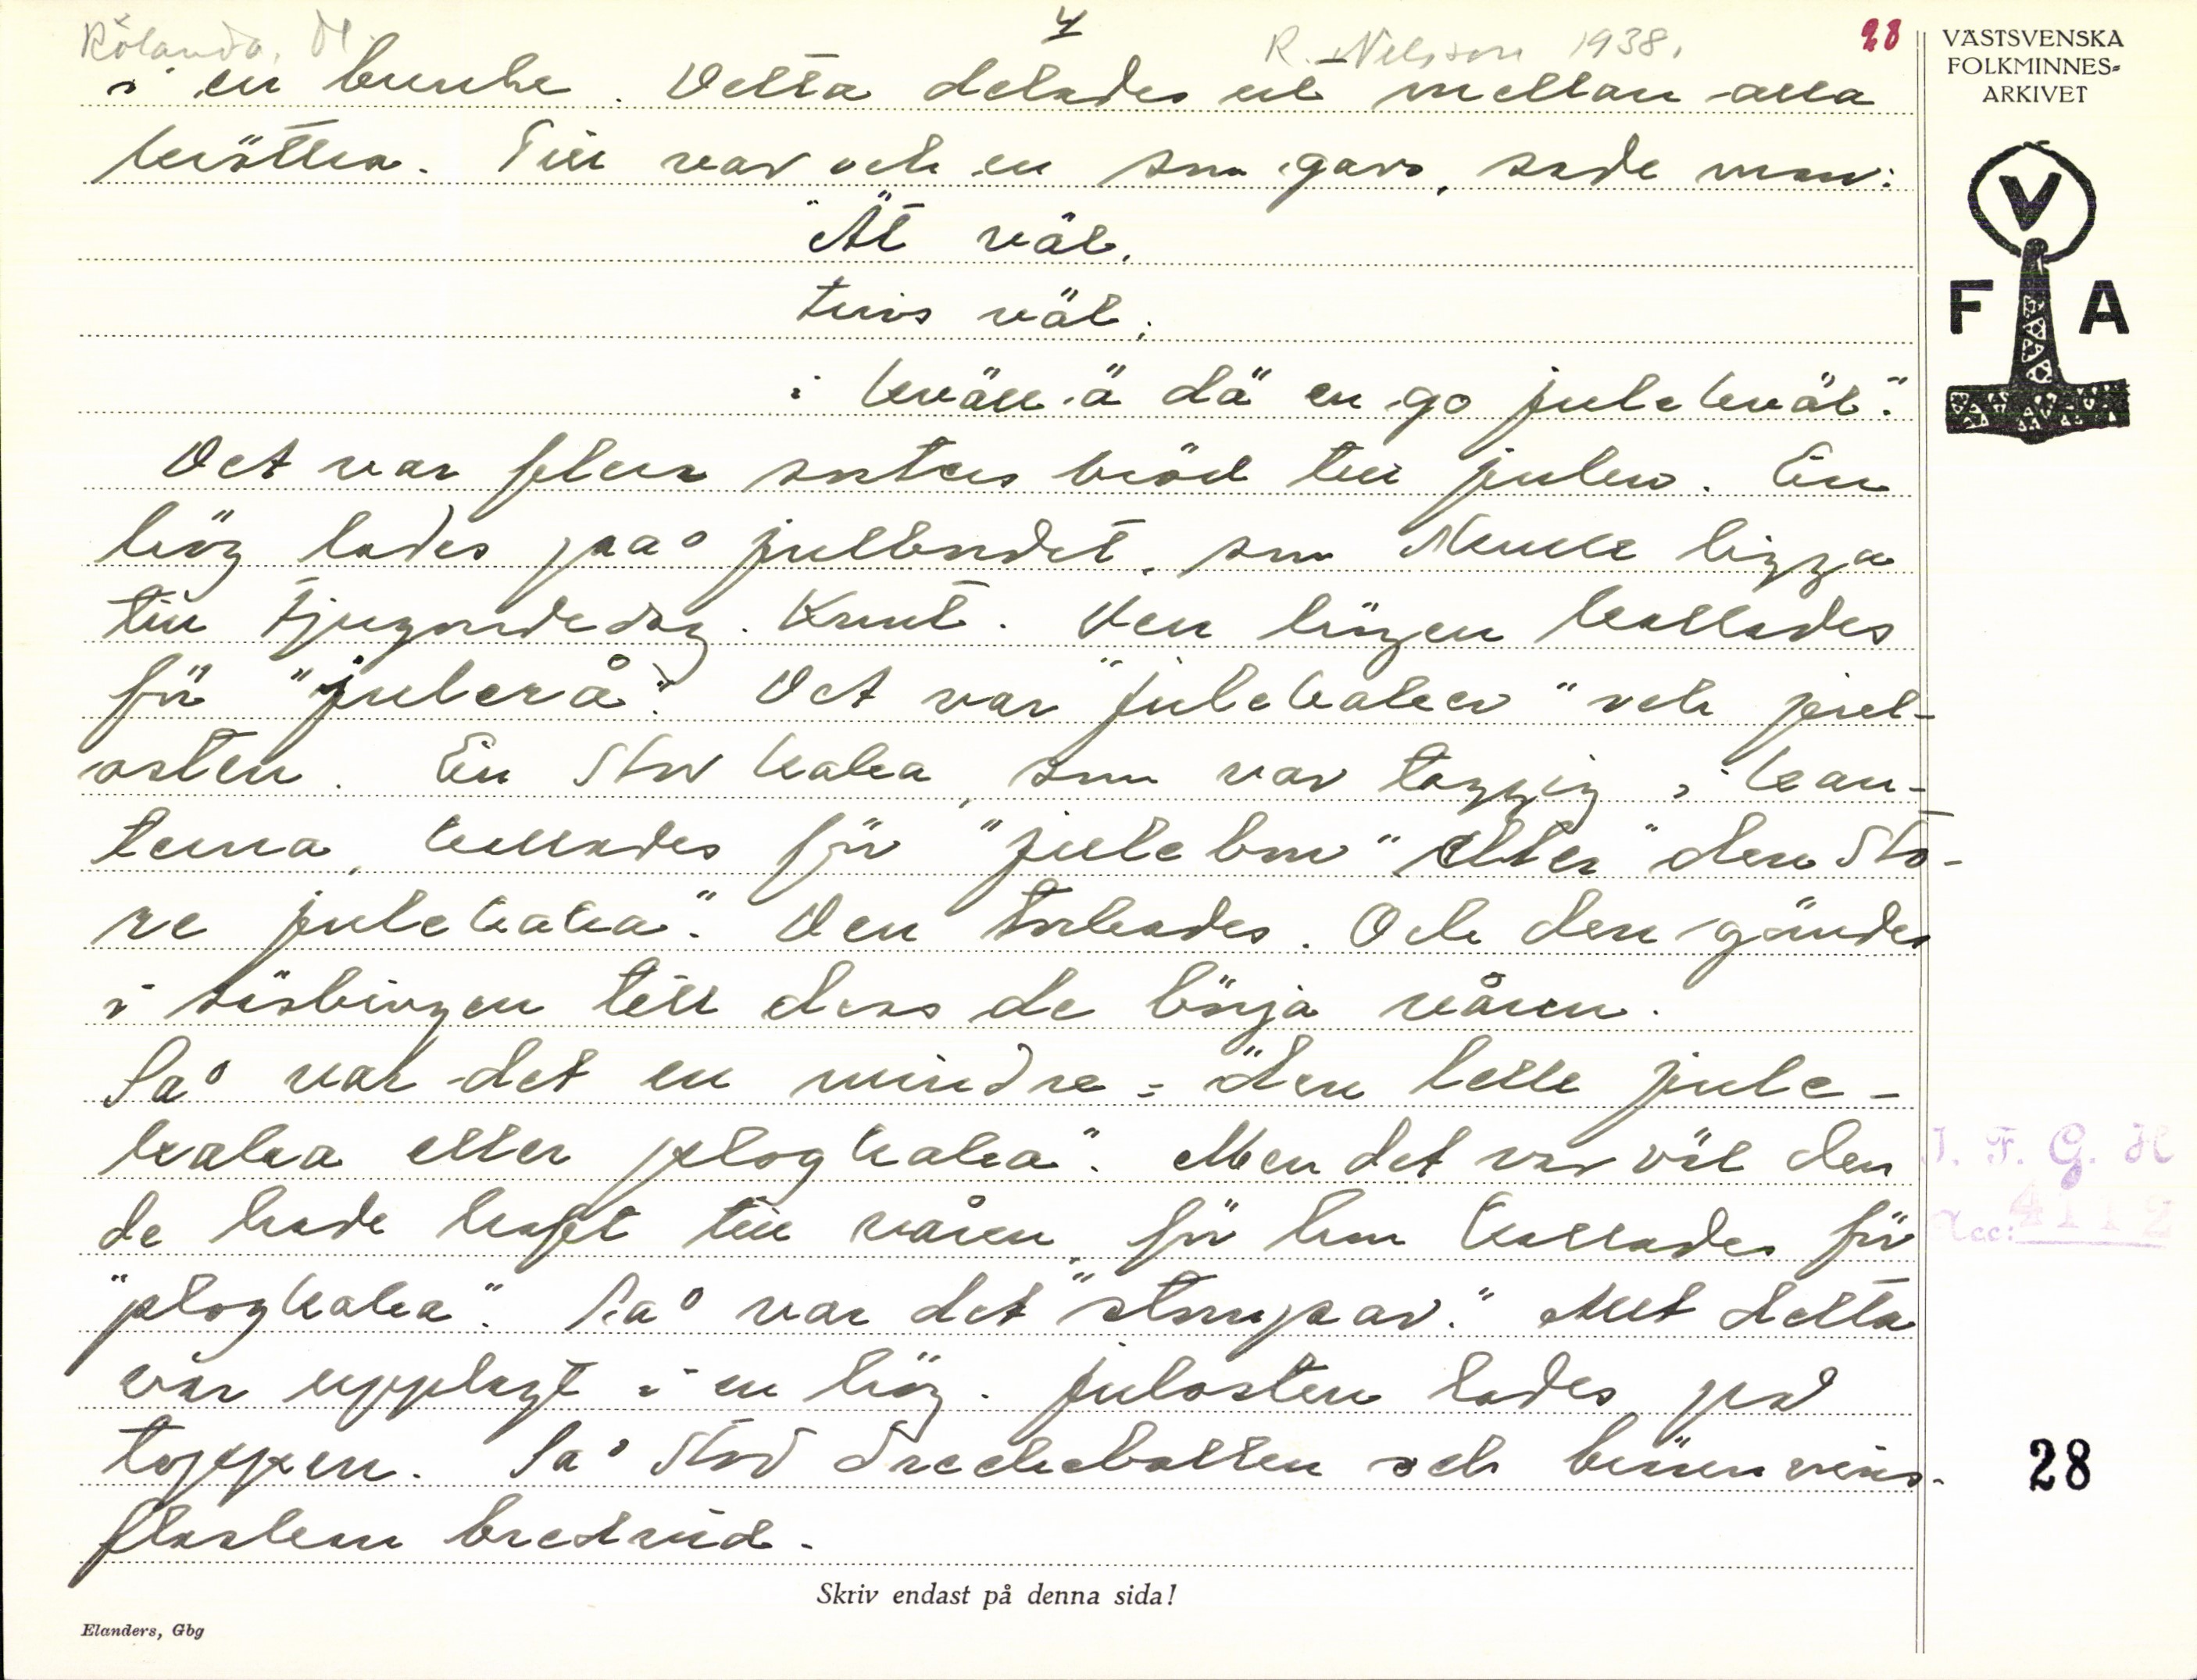 Rölanda, Dl.
4
R. Nelson 1938.
28
VÄSTSVENSKA
FOLKMINNES-
ARKIVET
V
F A
i en bunke. Detta delades ut mellan alla
kröttra. Till var och en som gavs, sade man:
"Ät väl,
trivs väl;
i kväll ä dä en go julekväl."
Det var flera sorters bröd till julen. En
hög lades på julbordet, som skulle ligga
till tjugondedag Knut. Den högen kallades
för "julerå". Det var "julekaker" och jul-
osten. En stor kaka, som var taggig i kan-
terna, kallades för "julebror" eller "den sto-
re julekaka". Den torkades. Och den gömdes
i säsbingen till dess de börja våren.
Så var det en mindre = "den lelle jule-
kaka eller plogkaka". Men det var väl den
de hade haft till våren, för hon kallades för
"plogkaka". Så var det "stompar." Allt detta
var upplagt i en hög. Julosten lades på
toppen. Så stod drecksbollen och brännvins-
flaskan bredvid.
I. F. G. H
Acc: 4112
28
Skriv endast på denna sida!
Elanders, Gbg